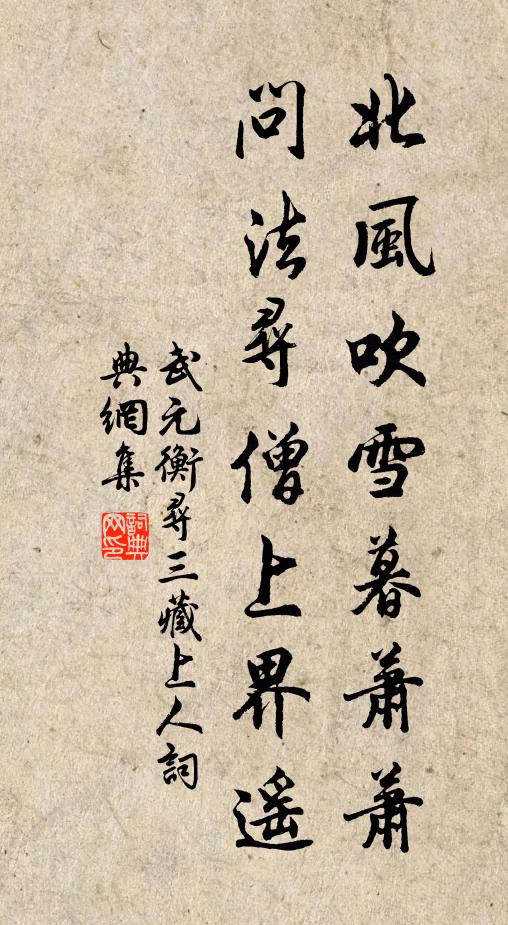 北風吹雪暮蕭蕭
問法尋僧上界遥
武元衡尋三藏上人詞
典網集
詞典网印